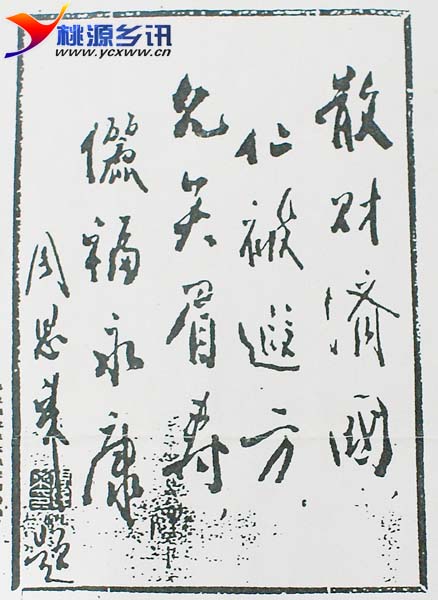 桃源乡讯
www.ycxww.cn
散财濟國
仁被遐方
允矣眉寿
儷福永康
周恩来题